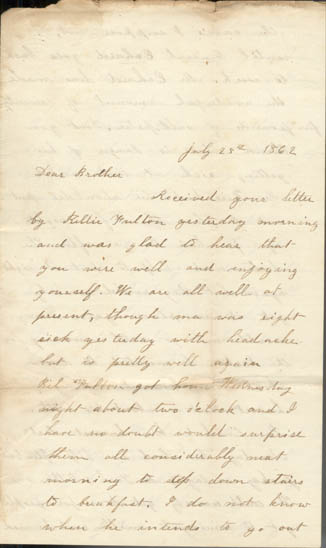 July 25th 1862
Dear Brother
Received your letter
by Killie Fulton yesterday morning
and was glad to hear that
you were well and enjoying
yourself. We are all well at
present, though ma was right
sick yesterday with headache
but is pretty well again
Fulton got home Wednesday
night about two o'clock and I
have no doubt would surprise
them all considerably next
morning to step down stairs
to breakfast. I do not know
when he intends to go out